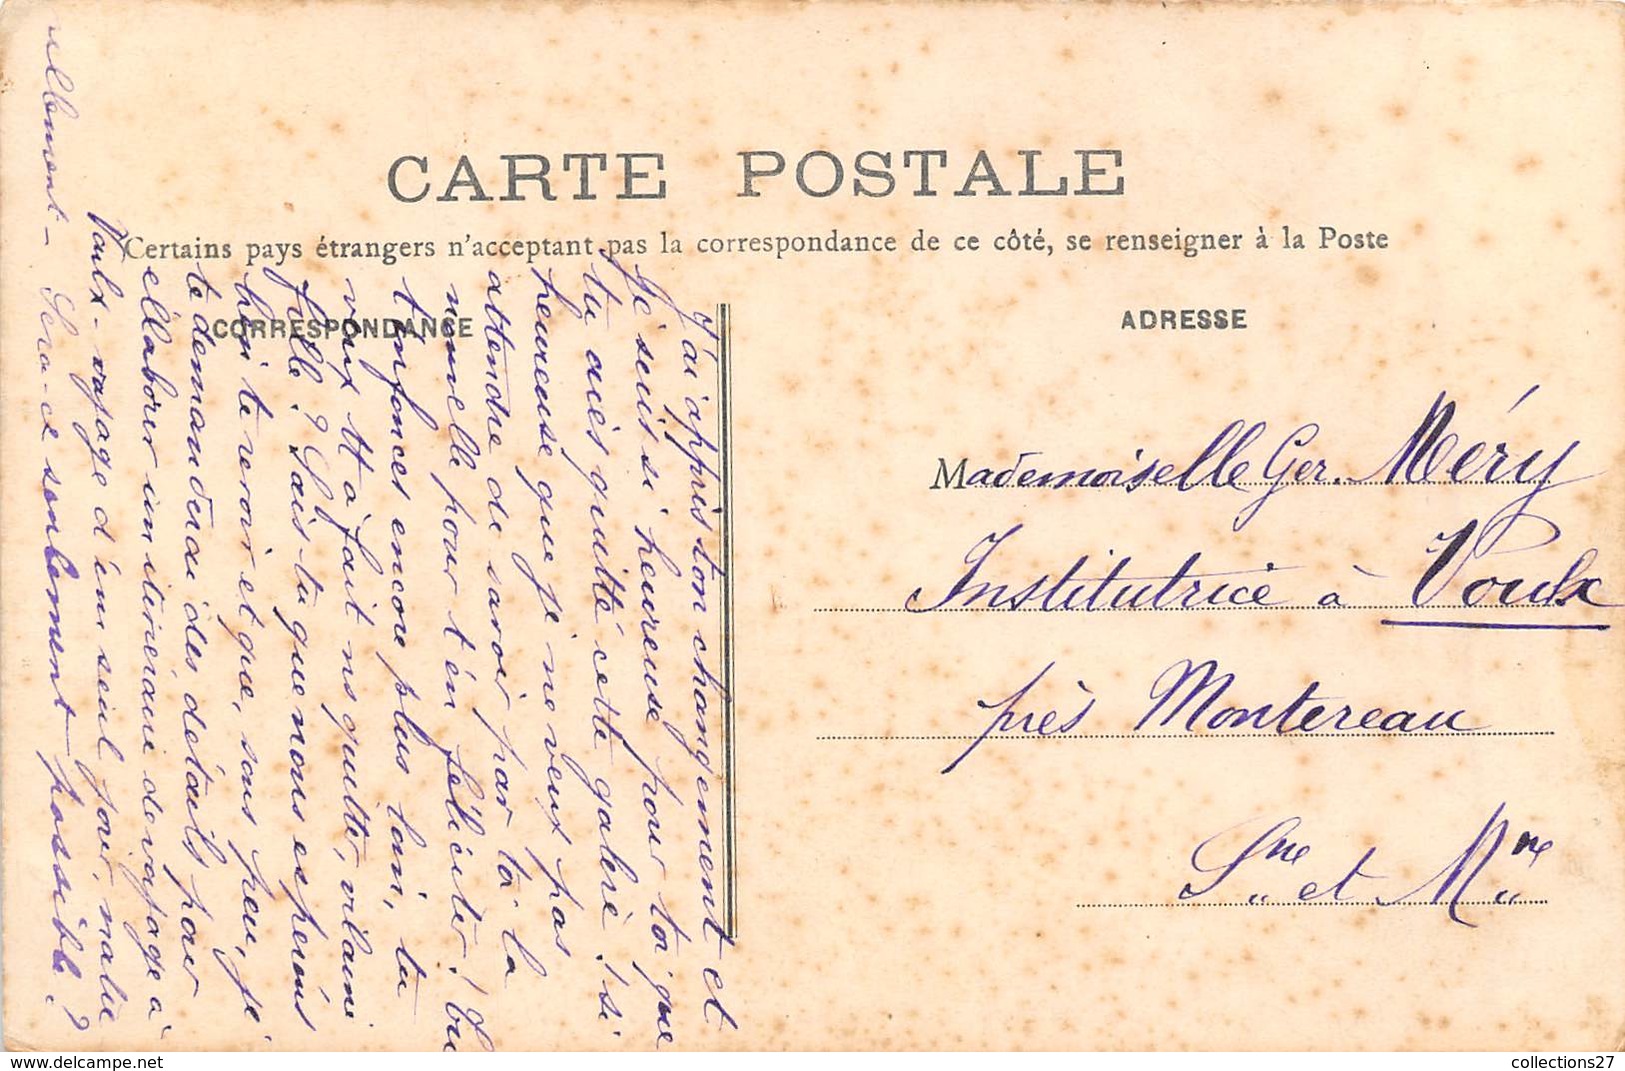 CARTE POSTALE
Certains pays étrangers n'acceptant pas la correspondance de ce côté, se renseigner à la Poste
CORRESPONDANCE
ADRESSE
J'ai appris ton changement et
je suis si heureuse pour toi que
tu aies quitté cette galère ! si
heureuse que je ne veux pas
attendre de savoir par toi la
nouvelle pour t'en féliciter ! Tu
t'enfonces encore plus loin, tu
vaux tt à fait ns quitter, vilaine
folle ? Sais-tu que nous espérons
bien te revoir et que, sous peu, je
te demanderai des détails pour
ellaborer un itinéraire de voyage à
Voulx - voyage d'un seul jour,
 - Sera-ce seulement possible ?
Mademoiselle Ger. Méry
Institutrice à Voulx
près Montereau
Sne et Mne
collections27